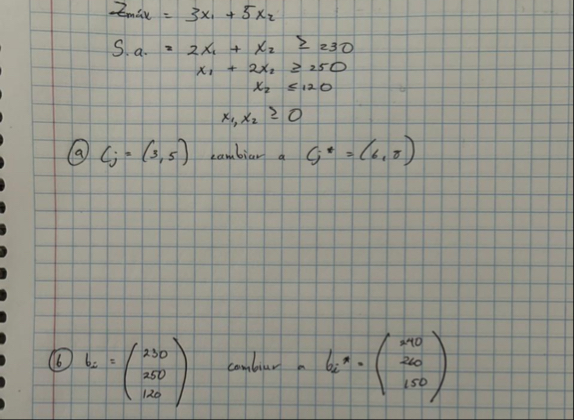 Zmáx = 3x₁ + 5x₂
S.a. = 2x₁ + x₂ ≥ 230
x₁ + 2x₂ ≥ 250
x₂ ≤ 120
x₁, x₂ ≥ 0
ⓐ Cj = (3,5) cambiar a Cj* = (6,8)
ⓑ bi = (230 250 120) cambiar a bi* = (240 260 150)